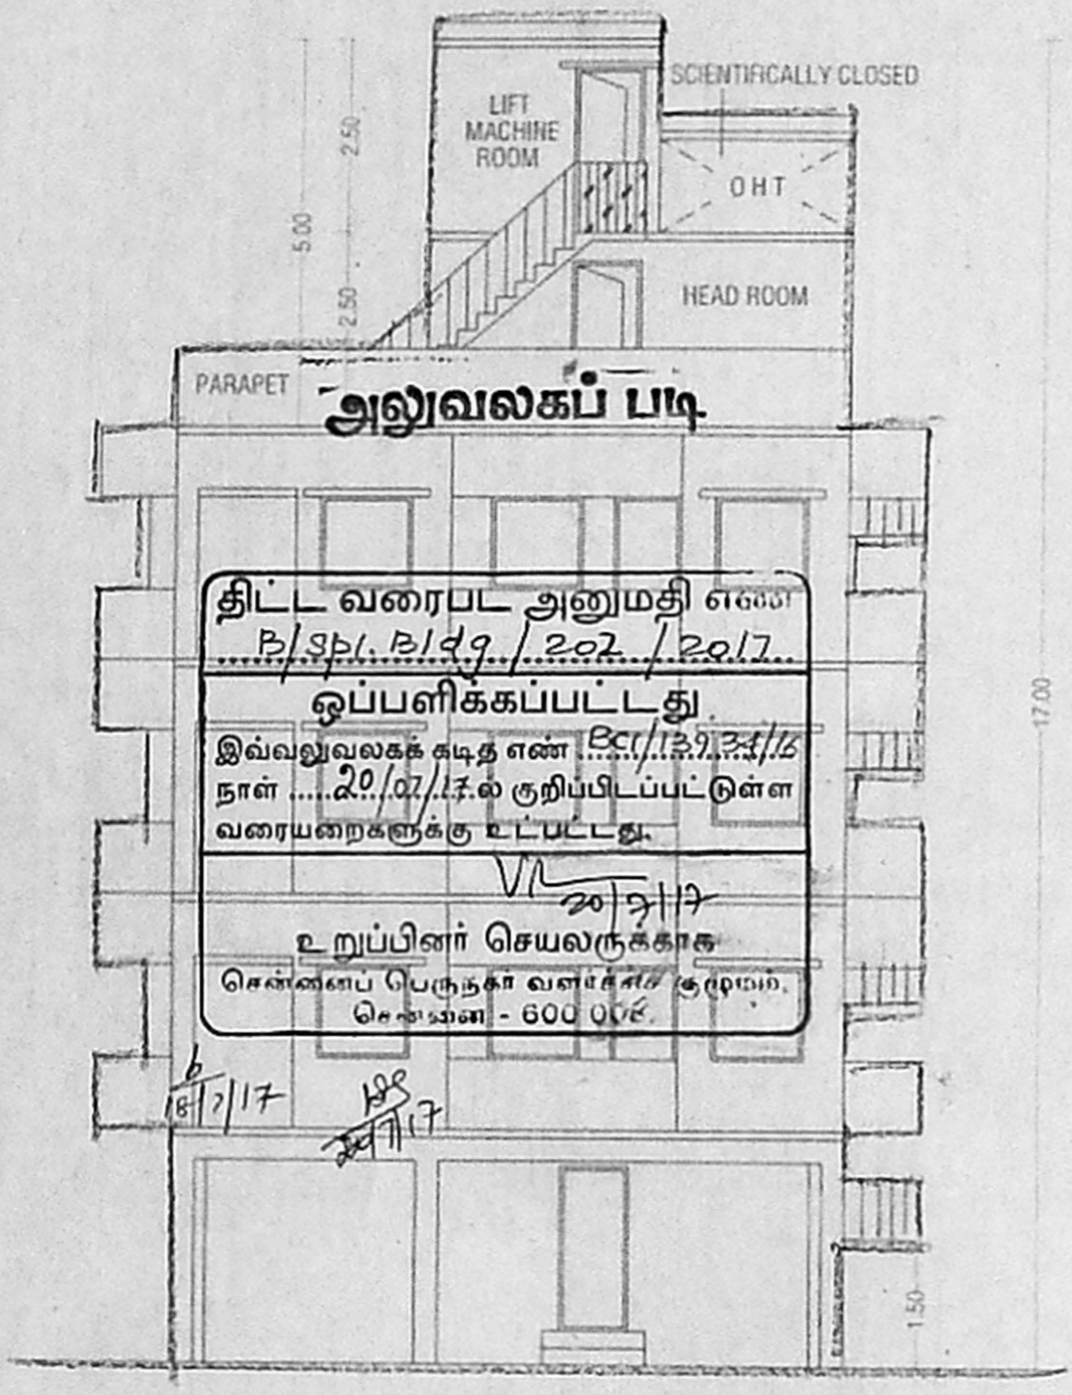 SCIENTIFICALLY CLOSED
LIFT
MACHINE
ROOM
2.50
OHT
5.00
2.50
HEAD ROOM
PARAPET
அலுவலகப் படி
திட்ட வரைபட அனுமதி எண்
B/Spl. Bldg / 202 / 2017
ஒப்பளிக்கப்பட்டது
இவ்வலுவலகக் கடித எண்
நாள் 20/07/17 ல் குறிப்பிடப்பட்டுள்ள
வரையறைகளுக்கு உட்பட்டது.
20/7/17
உறுப்பினர் செயலருக்காக
சென்னைப் பெருநகர் வளர்ச்சிக் குழுமம்,
சென்னை - 600 008.
17.00
18/7/17
1.50